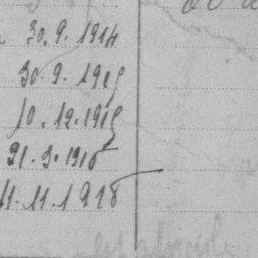 30.9.1914
30.9.1915
10.12.1915
21.3.1916
11.11.1918